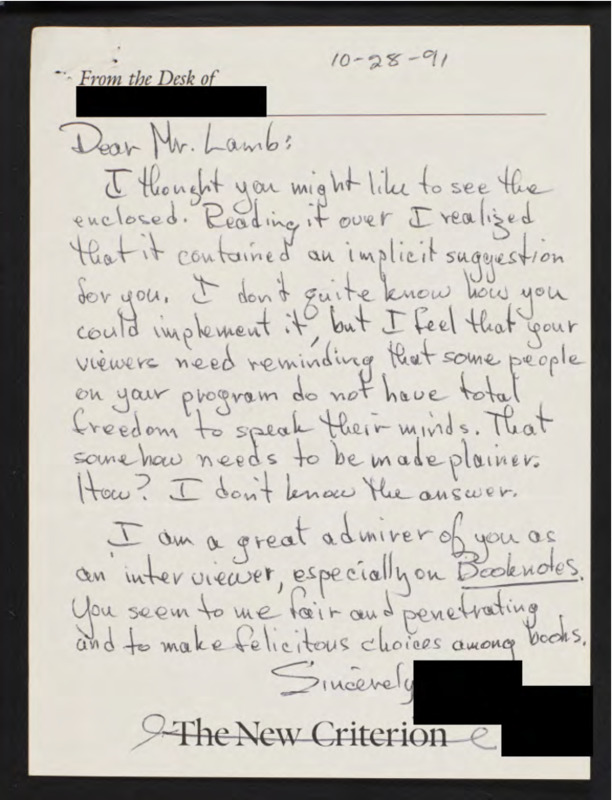 10-28-91
From the Desk of
Dear Mr. Lamb:
I thought you might like to see the
enclosed. Reading it over I realized
that it contained an implicit suggestion
for you. I don't quite know how you
could implement it, but I feel that your
viewers need reminding that some people
on your program do not have total
freedom to speak their minds. That
somehow needs to be made plainer.
How? I don't know the answer.
I am a great admirer of you as
an interviewer, especially on Booknotes.
You seem to me fair and penetrating
and to make felicitous choices among books.
Sincerely
The New Criterion